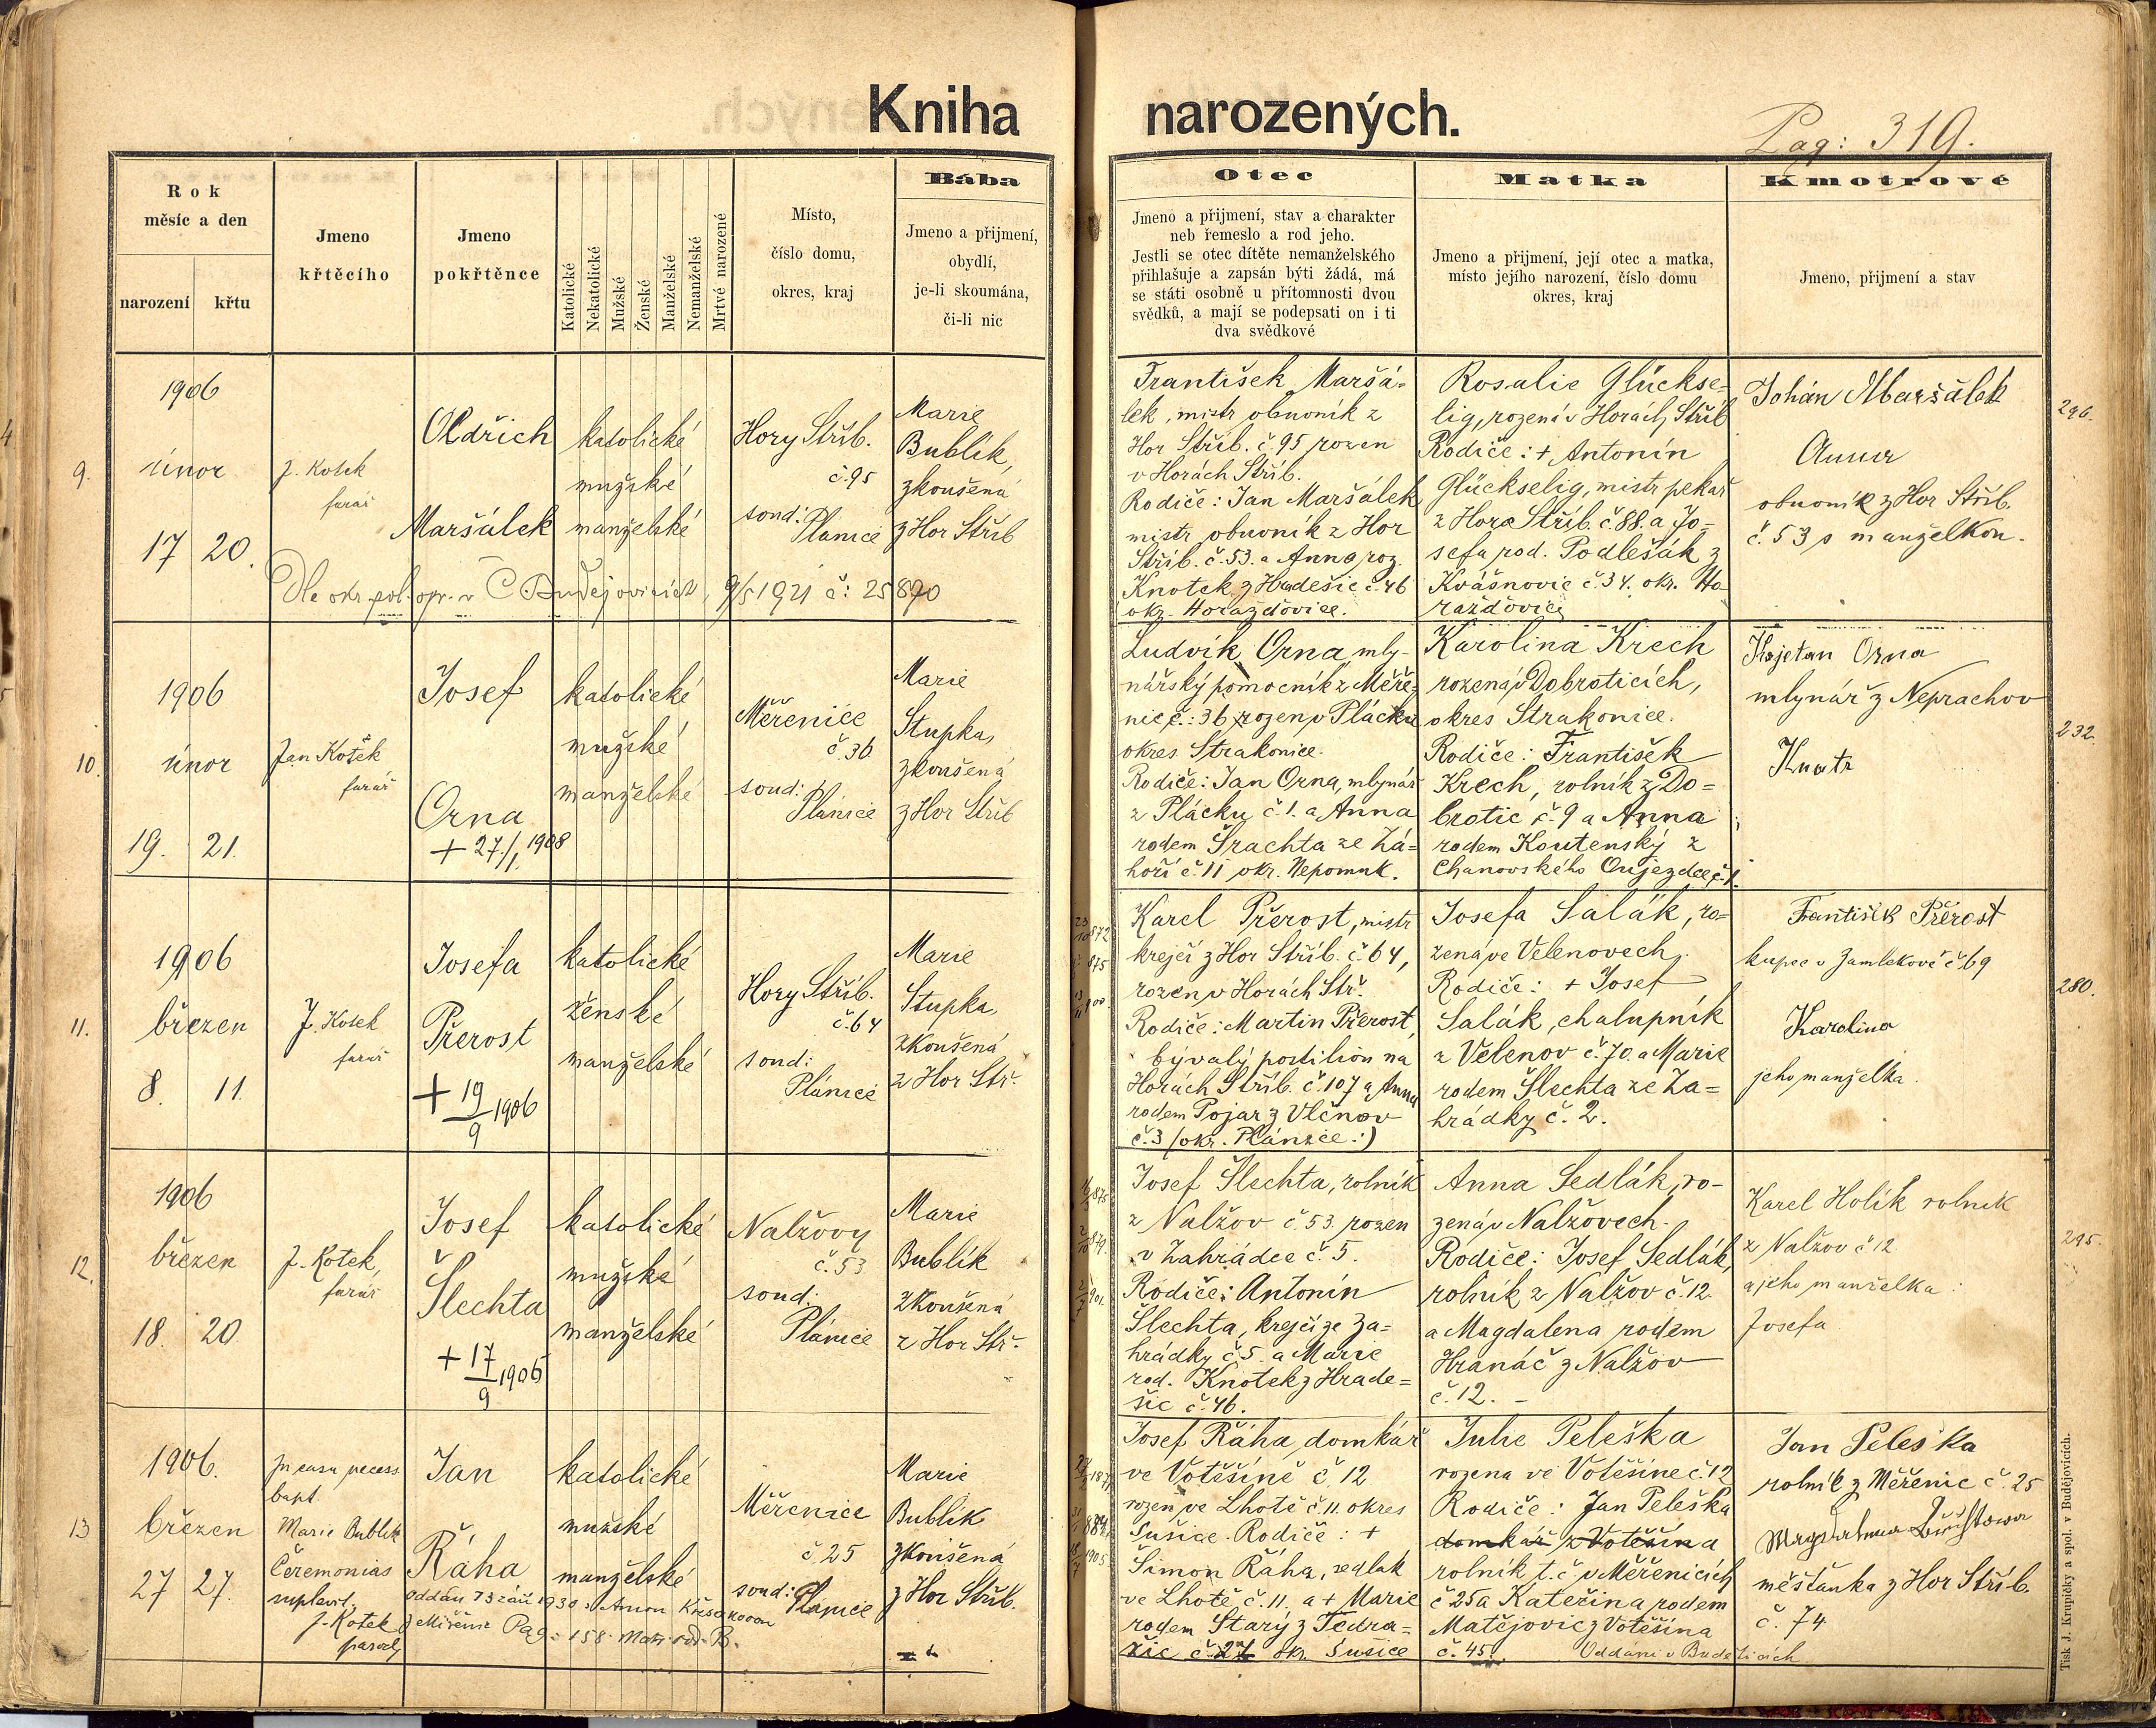 Kniha narozených.
Pag: 319.
Rok
měsíc a den
narození
křtu
Jmeno
křtěcího
Jmeno
pokřtěnce
Katolické
Nekatolické
Mužské
Ženské
Manželské
Nemanželské
Mrtvé narozené
Místo,
číslo domu,
okres, kraj
Bába
Jmeno a přijmení,
obydlí,
je-li skoumána,
či-li nic
Otec
Jmeno a přijmení, stav a charakter
neb řemeslo a rod jeho.
Jestli se otec dítěte nemanželského
přihlašuje a zapsán býti žádá, má
se státi osobně u přítomnosti dvou
svědků, a mají se podepsati on i ti
dva svědkové
Matka
Jmeno a přijmení, její otec a matka,
místo jejího narození, číslo domu
okres, kraj
Kmotrové
Jmeno, přijmení a stav
9.
1906
únor
17 20.
J. Kotek
farář
Oldřich
Maršálek
katolické
mužské
manželské
Hory Stříb.
č. 95
soud:
Plánice
Marie
Bublík,
zkoušená
z Hor Stříb
Dle okr. pol. opr. v Č. Budějovicích, 9/5 1921 č: 25890
František Maršá-
lek, mistr obuvník z
Hor Stříb. č. 95 rozen
v Horách Stříb.
Rodiče: Jan Maršálek
mistr obuvník z Hor
Stříb. č. 53. a Anna roz.
Knotek z Hradešic č. 46
okr. Horažďovice.
Rosalie Glückse-
lig, rozená v Horách Stříb
Rodiče: + Antonín
Glückselig, mistr pekař
z Hor Stříb. č. 88. a Jo-
sefa rod. Podlešák z
Kvášňovic č. 34. okr. Ho-
ražďovice
Johán Maršálek
Anna
obuvník z Hor Stříb.
č. 53 s manželkou.
296.
10.
1906
únor
19. 21.
Jan Kotek
farář
Josef
Orna
+ 27./1. 1908
katolické
mužské
manželské
Měřenice
č. 36
soud:
Plánice
Marie
Stupka,
zkoušená
z Hor Stříb
Ludvík Orna, mly-
nářský pomocník z Měře-
nic č.: 36 rozen v Plácku
okres Strakonice.
Rodiče: Jan Orna, mlynář
z Plácku č. 1. a Anna
rodem Šrachta ze Zá-
hoří č. 11 okr. Nepomuk.
Karolina Krech
rozená v Dobroticích,
okres Strakonice.
Rodiče: František
Krech, rolník z Do-
brotic č. 9 a Anna
rodem Koutenský z
Chanovského Oujezdce č. 1.
Kajetan Orna
mlynář z Neprachov
232.
11.
1906
březen
8. 11.
J. Kotek
farář
Josefa
Přerost
+ 19/9 1906
katolické
ženské
manželské
Hory Stříb.
č. 64
soud:
Plánice
Marie
Stupka,
zkoušená
z Hor Stř.
Karel Přerost, mistr
krejčí z Hor Stříb. č. 64,
rozen v Horách Stř.
Rodiče: Martin Přerost,
bývalý postilion na
Horách Stříb. č. 107 a Anna
rodem Pojar z Vlčnov
č. 3 (okr. Plánice:)
Josefa Salák, ro-
zená ve Velenovech.
Rodiče: + Josef
Salák, chalupník
z Velenov č. 70. a Marie
rodem Šlechta ze Za-
hrádky č. 2.
František Přerost
kupec v Zamlekově č 69
Karolina
jeho manželka.
280.
12.
1906
březen
18. 20
J. Kotek,
farář
Josef
Šlechta
+ 17/9 1906
katolické
mužské
manželské
Nalžovy
č. 53
soud:
Plánice
Marie
Bublík
zkoušená
z Hor Stř.
Josef Šlechta, rolník
z Nalžov č. 53. rozen
v Zahrádce č. 5.
Rodiče: Antonín
Šlechta, krejčí ze Za-
hrádky č. 5. a Marie
rod. Knotek z Hrade-
šic č. 46.
Anna Sedlák, ro-
zená v Nalžovech.
Rodiče: Josef Sedlák,
rolník z Nalžov č. 12.
a Magdalena rodem
Hranáč z Nalžov
č. 12. -
Karel Holík rolník
z Nalžov č 12
a jeho manželka
Josefa
295.
13
1906.
březen
27 27.
In casu necess.
bapt.
Marie Bublík
Ceremonias
supplevit.
J. Kotek
Jan
Řáha
katolické
mužské
manželské
Měřenice
č. 25
soud: Plánice
Marie
Bublík
zkoušená
z Hor Stříb.
oddán 13 září 1930 s Annou
Pag. 158
Josef Řáha, domkář
ve Votěšíně č. 12
rozen ve Lhotě č. 11. okres
Sušice. Rodiče: +
Šimon Řáha, sedlák
ve Lhotě č. 11. a + Marie
rodem Starý z Tedra-
žic č. 21 okr. Sušice
Julie Peleška
rozena ve Votěšíne č. 12
Rodiče: Jan Peleška
domkář z Votěšína
rolník t. č. v Měřenicích
č 25 a Kateřina rodem
Matějovic z Votěšína
č. 45.
Oddáni v Budětících.
Jan Peleška
rolník z Měřenic č. 25
měšťanka z Hor Stříb.
č. 74
Tisk J. Krupičky a spol. v Budějovicích.